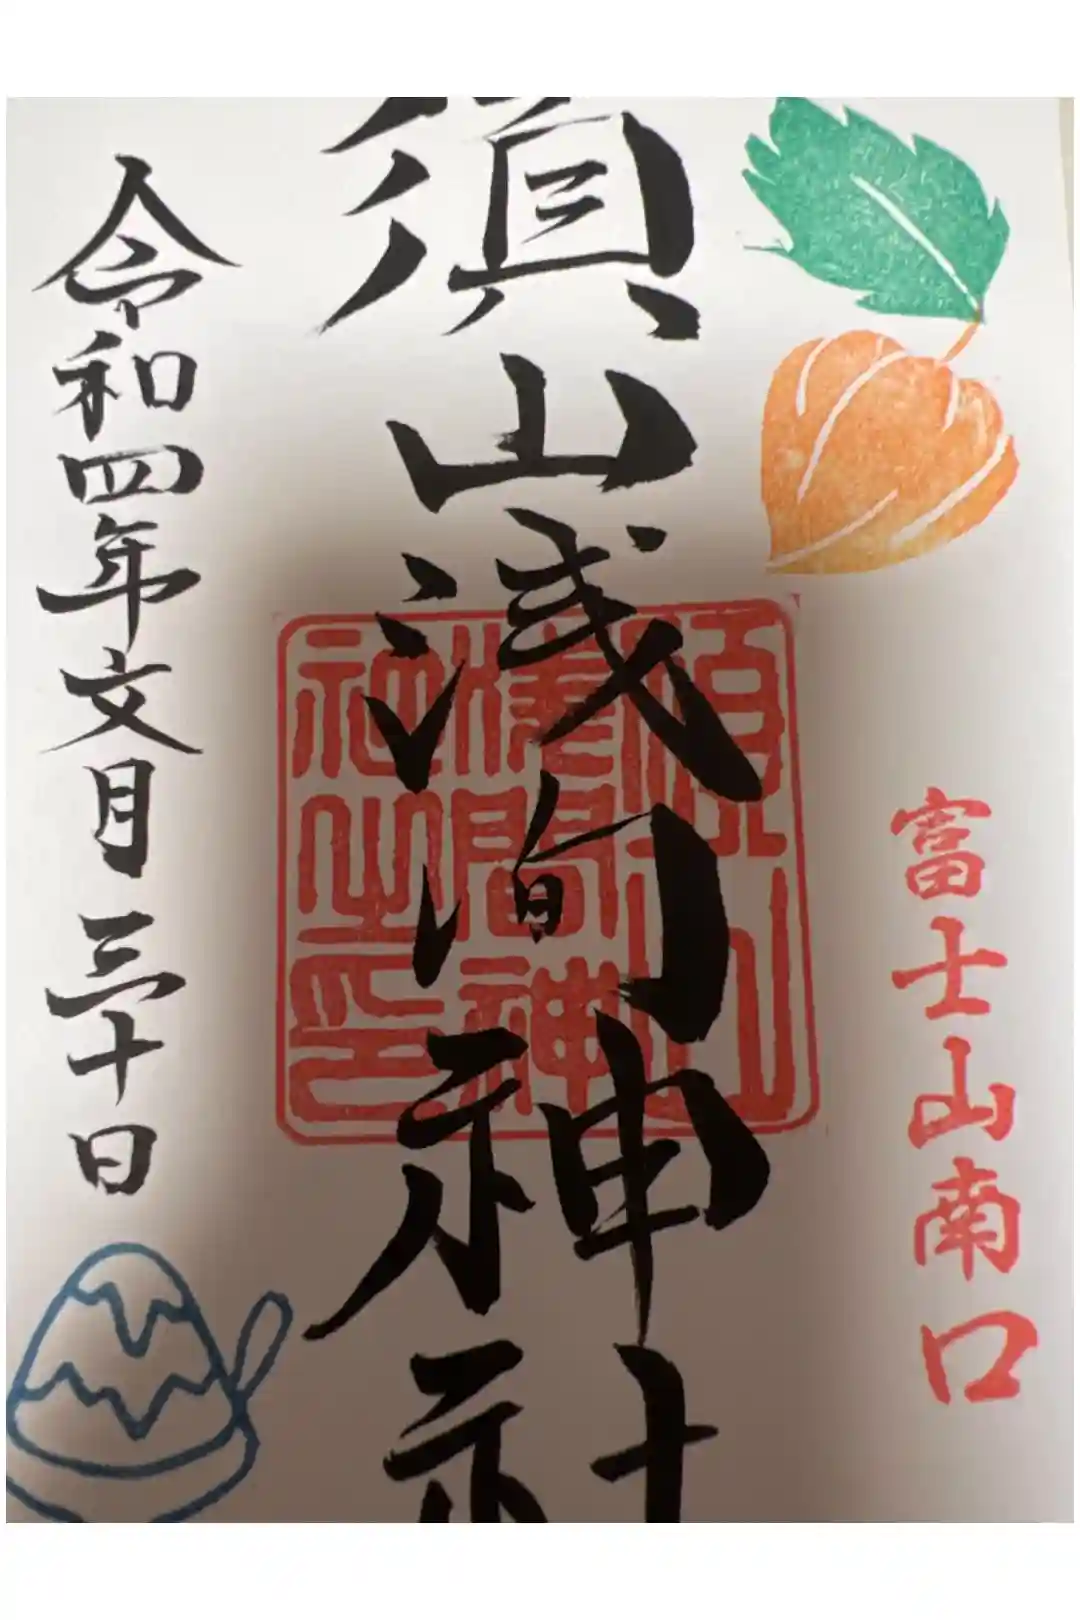 富士山南口
須山浅间神社
須山
浅間神
社之印
令和四年文月三十日